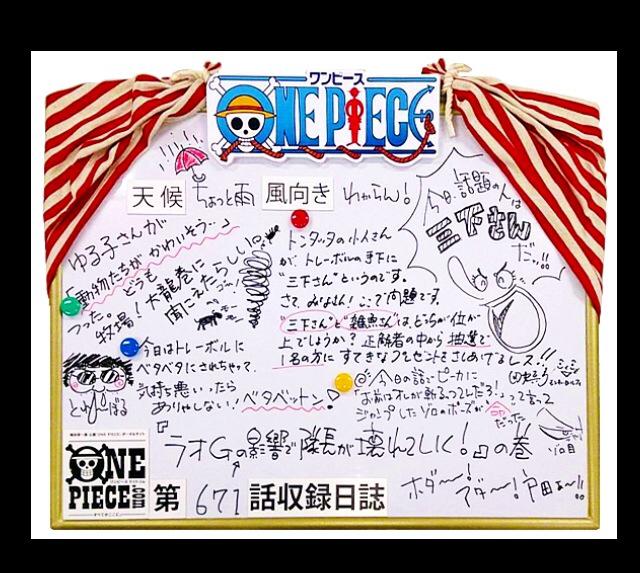 ワンピース
ONE PIECE
天候 ちょっと雨 風向き わからん！
今日、話題の人は
三下さん
だっ!!
ゆる子さんが
「動物たちがかわいそう…」
つった。どうも
牧場！大龍巻に
トンタッタの小人さん
が、トレーボルの手下に
"三下さん"というのです。
さて、みなさん！ここで問題です。
"三下さん"と"雑魚さん"は、どちらが位が
上でしょうか？正解者の中から抽選で
1名の方にすてきなプレゼントをさしあげてるレス!!
今日はトレーボルに
ベタベタにされちゃって、
気持ち悪いったら
ありゃしない！ベタベットン
とれーぼる
◎今日の話でピーカに
「お前はオレが斬るってんだろ！」って言って
ジャンプしたゾロのポーズが
だった
ゾロ目
『ラオGの影響で隊長が壊れてしく！』の巻
ONE
PIECE
第671話収録日誌
ホダ〜！